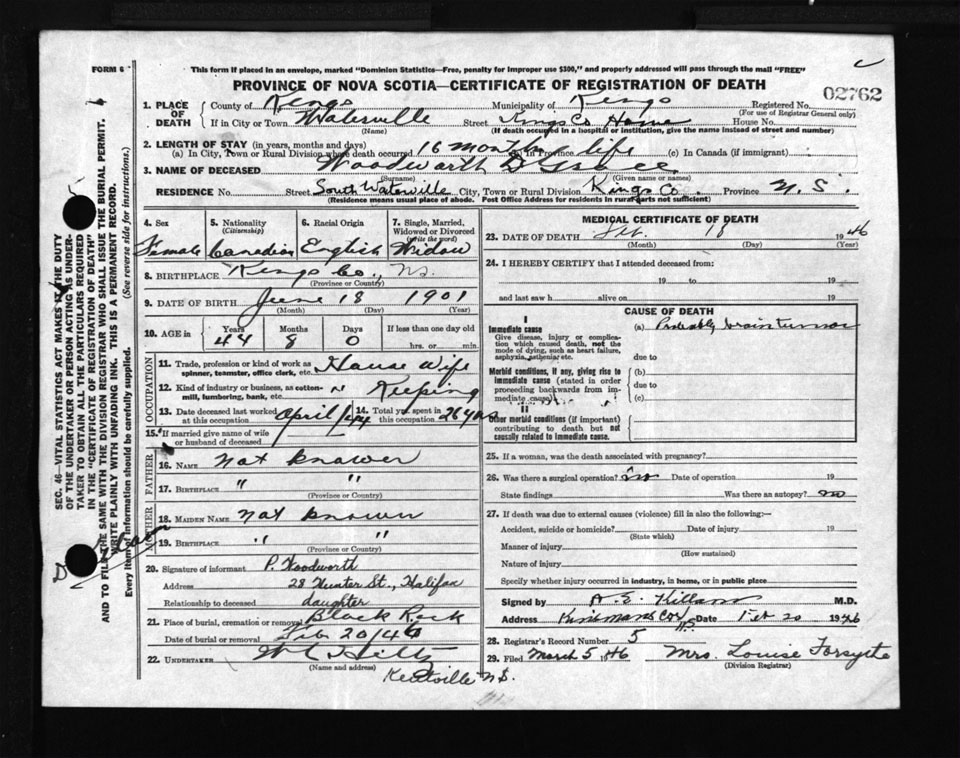 FORM 6
This form if placed in an envelope, marked "Dominion Statistics—Free, penalty for improper use $300," and properly addressed will pass through the mail "FREE"
PROVINCE OF NOVA SCOTIA—CERTIFICATE OF REGISTRATION OF DEATH
02762
1. PLACE OF DEATH County of Kings Municipality of Kings Registered No.
(For use of Registrar General only)
If in City or Town Waterville Street Kings Co Home House No.
(Name) (If death occurred in a hospital or institution, give the name instead of street and number)
2. LENGTH OF STAY (in years, months and days)
(a) In City, Town or Rural Division where death occurred 16 months (b) in Province life (c) In Canada (if immigrant)
3. NAME OF DECEASED Woodworth D
(Surname) (Given name or names)
RESIDENCE No. Street South Waterville City, Town or Rural Division Kings Co. Province N.S.
(Residence means usual place of abode. Post Office Address for residents in rural parts not sufficient)
4. Sex Female
5. Nationality (Citizenship) Canadian
6. Racial Origin English
7. Single, Married, Widowed or Divorced (write the word) Widow
8. BIRTHPLACE Kings Co., N.S.
(Province or Country)
9. DATE OF BIRTH June 18 1901
(Month) (Day) (Year)
10. AGE in Years 44 Months 8 Days 0 If less than one day old hrs. or min.
OCCUPATION
11. Trade, profession or kind of work as spinner, teamster, office clerk, etc. House Wife
12. Kind of industry or business, as cotton-mill, lumbering, bank, etc. " Keeping
13. Date deceased last worked at this occupation April/44 14. Total yrs. spent in this occupation 26 yrs
15. If married give name of wife or husband of deceased
FATHER
16. NAME Not known
17. BIRTHPLACE " "
(Province or Country)
MOTHER
18. MAIDEN NAME Not known
19. BIRTHPLACE " "
(Province or Country)
20. Signature of informant P. Woodworth
Address 28 Hunter St., Halifax
Relationship to deceased daughter
21. Place of burial, cremation or removal Black Rock
Date of burial or removal Feb 20/46
22. UNDERTAKER W Hiltz
(Name and address)
Kentville N.S.
MEDICAL CERTIFICATE OF DEATH
23. DATE OF DEATH Feb. 18 1946
(Month) (Day) (Year)
24. I HEREBY CERTIFY that I attended deceased from:
19 to 19
and last saw h alive on 19
CAUSE OF DEATH
I
Immediate cause
Give disease, injury or complication which caused death, not the mode of dying, such as heart failure, asphyxia, asthenia, etc.
(a) Probably brain tumor
due to
Morbid conditions, if any, giving rise to immediate cause (stated in order proceeding backwards from immediate cause)
(b)
due to
(c)
II
Other morbid conditions (if important) contributing to death but not causally related to immediate cause.
25. If a woman, was the death associated with pregnancy?
26. Was there a surgical operation? no Date of operation 19
State findings Was there an autopsy? no
27. If death was due to external causes (violence) fill in also the following:—
Accident, suicide or homicide? Date of injury 19
(State which)
Manner of injury
(How sustained)
Nature of injury
Specify whether injury occurred in industry, in home, or in public place
Signed by A. E. Killam M.D.
Address Kinsmans Cor NS Date Feb 20 1946
28. Registrar's Record Number 5
29. Filed March 5 1946 Mrs. Louise Forsythe
(Division Registrar)
SEC. 46—VITAL STATISTICS ACT MAKES IT THE DUTY
OF THE UNDERTAKER OR PERSON ACTING AS UNDERTAKER TO OBTAIN ALL THE PARTICULARS REQUIRED
IN THE "CERTIFICATE OF REGISTRATION OF DEATH"
AND TO FILE THE SAME WITH THE DIVISION REGISTRAR WHO SHALL ISSUE THE BURIAL PERMIT.
WRITE PLAINLY WITH UNFADING INK. THIS IS A PERMANENT RECORD.
Every item of information should be carefully supplied. (See reverse side for instructions.)